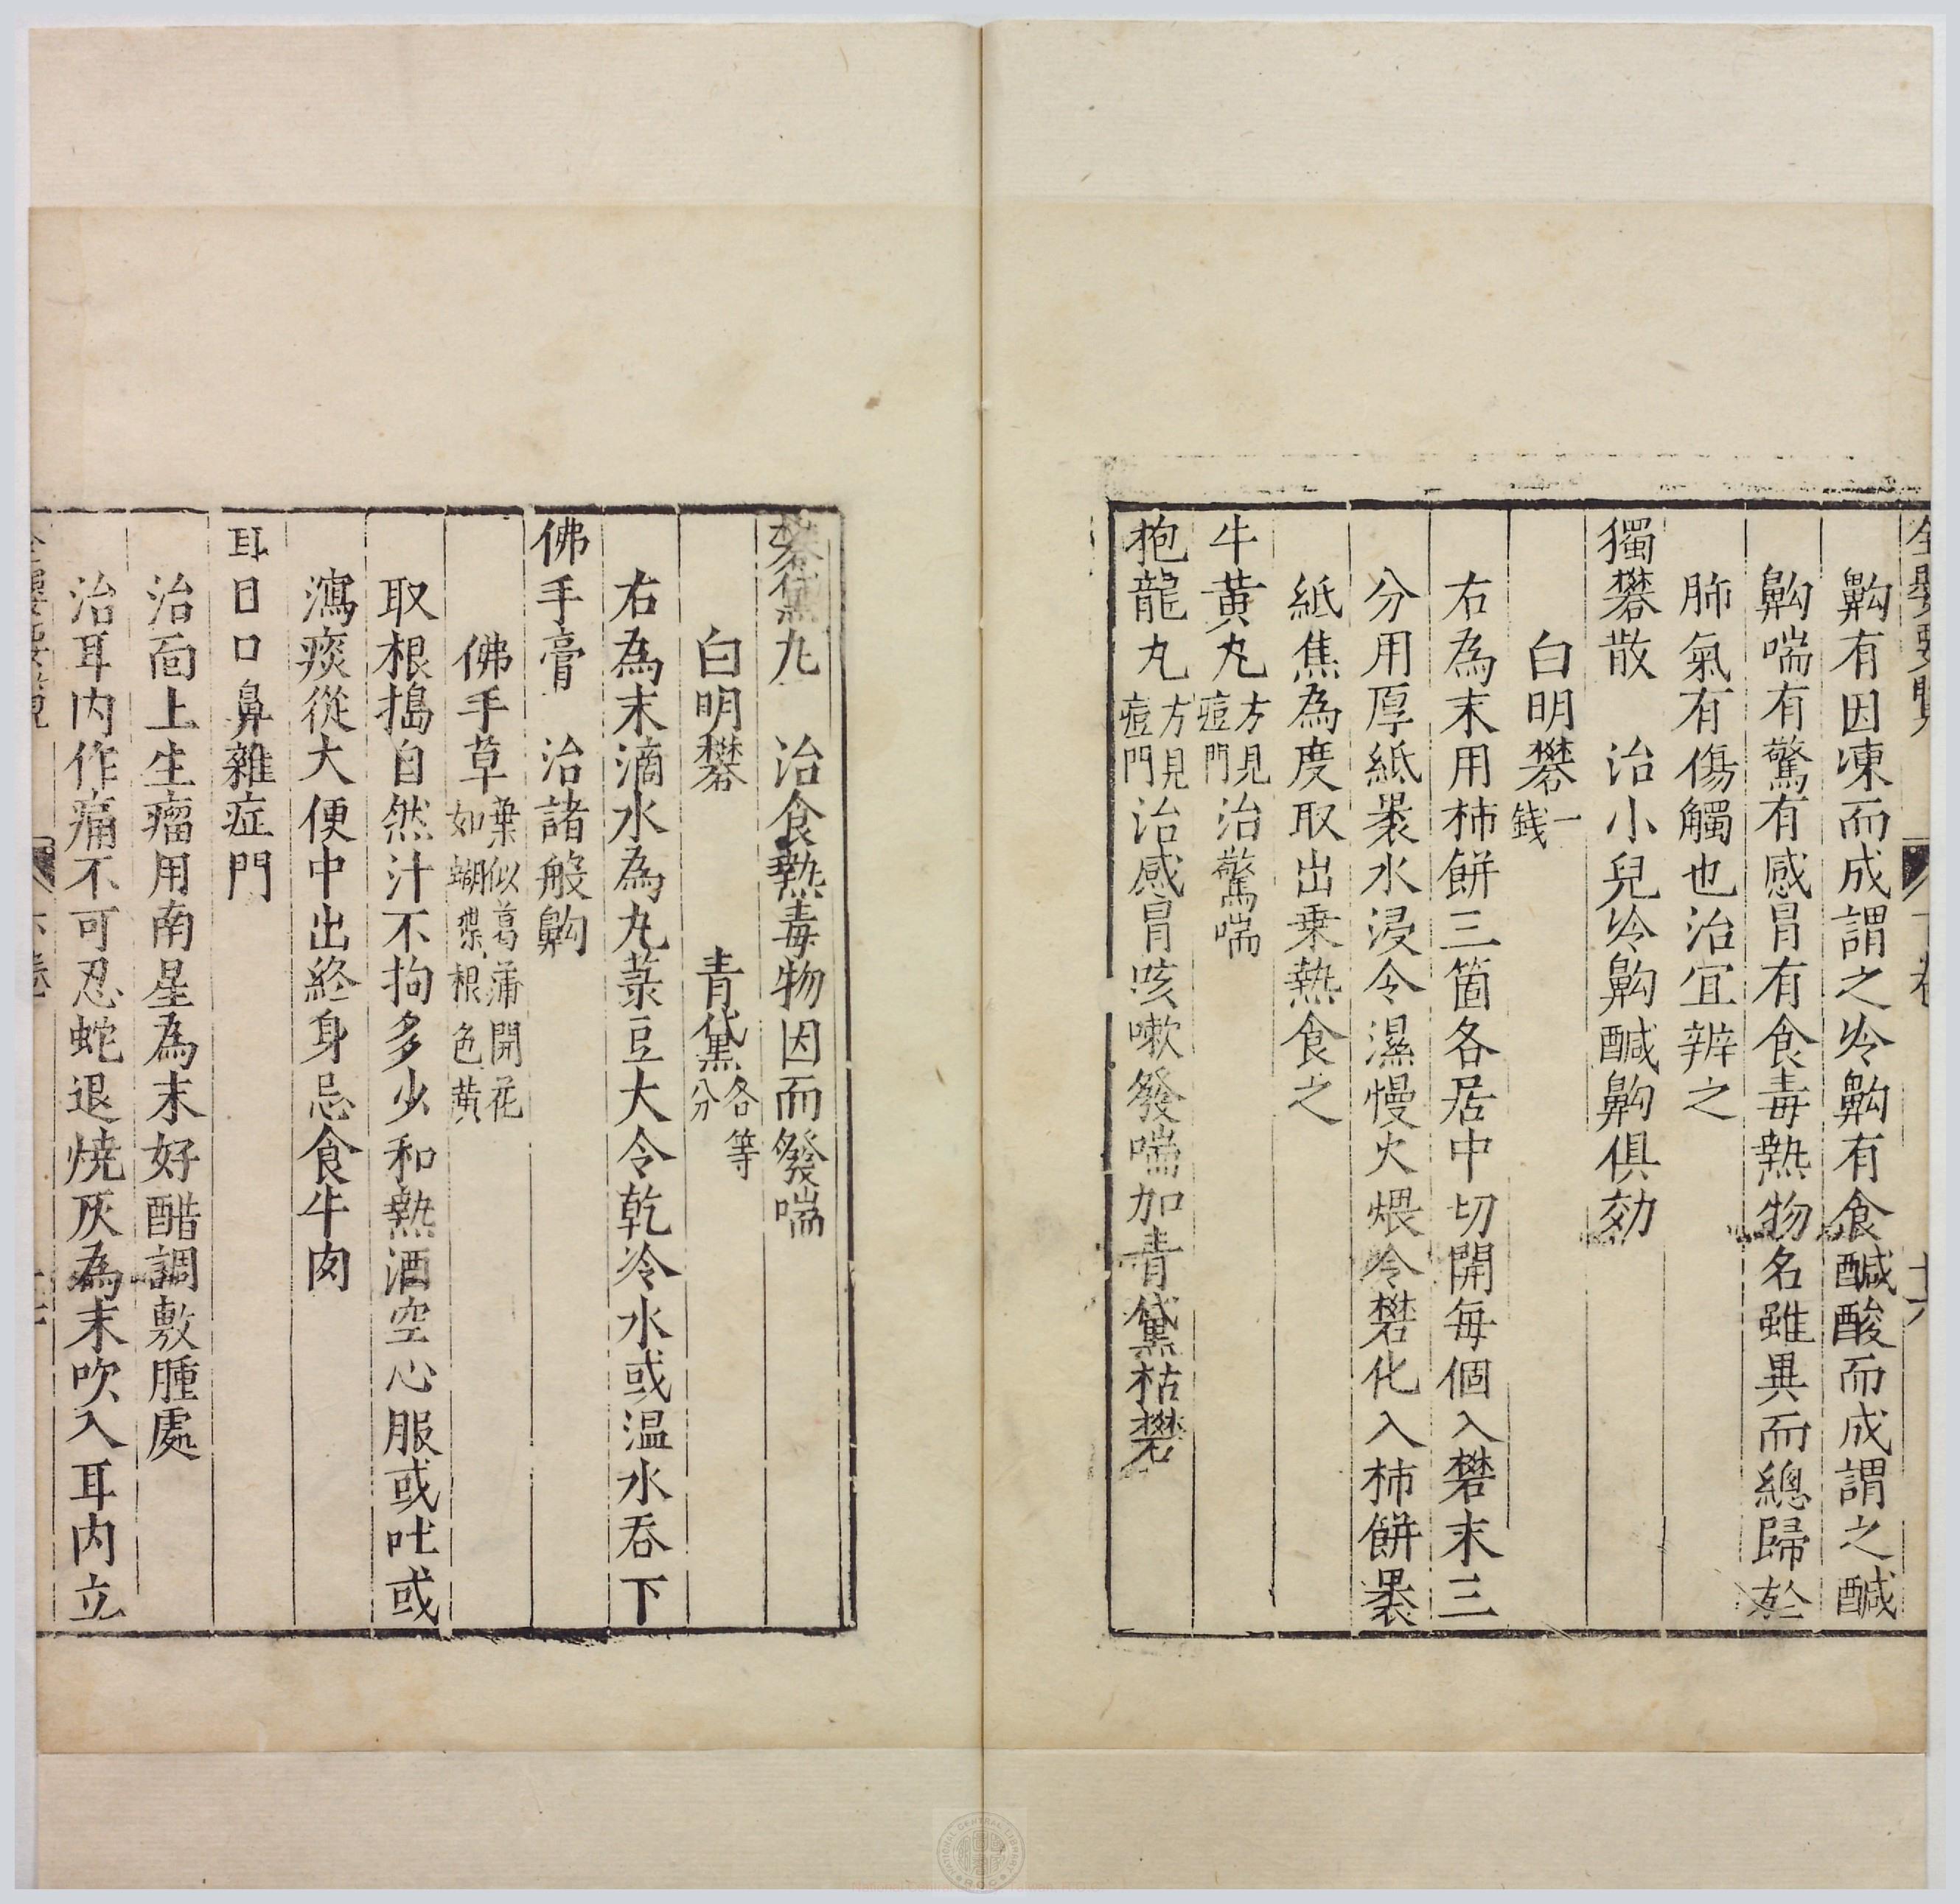 全嬰要覽 下卷 十六
齁有因凍而成謂之冷齁有食醎酸而成謂之醎
齁喘有驚有感冒有食毒熱物名雖異而總歸於
肺氣有傷觸也治宜辨之
獨礬散 治小兒冷齁醎齁俱効
白明礬一錢
右為末用柿餅三箇各居中切開每個入礬末三
分用厚紙褁水浸令濕慢火煨令礬化入柿餅褁
紙焦為度取出乗熱食之
牛黃丸方見痘門治驚喘
抱龍丸方見痘門治感冒咳嗽發喘加青黛枯礬
礬黛丸 治食熱毒物因而發喘
白明礬 青黛各等分
右為末滴水為丸菉豆大令乾冷水或温水吞下
佛手膏 治諸般齁
佛手草葉似葛蒲開花如蝴蝶根色黃
取根搗自然汁不拘多少和熱酒空心服或吐或
瀉痰從大便中出終身忌食牛肉
耳目口鼻雜症門
治面上生瘤用南星為末好醋調敷腫處
治耳内作痛不可忍蛇退燒灰為末吹入耳内立